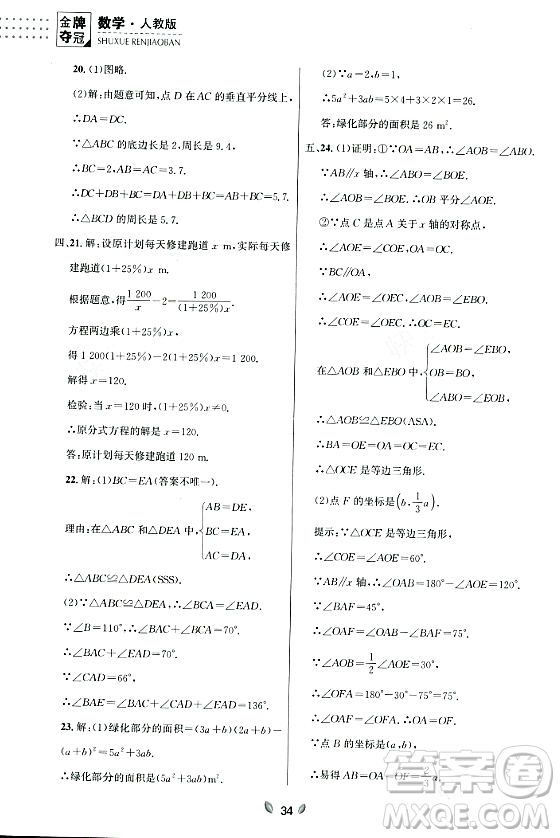 金牌
夺冠
数学·人教版
SHUXUE RENJIAOBAN
20. (1)图略.
(2)解:由题意可知,点 D 在 AC 的垂直平分线上,
∴DA=DC.
∵△ABC 的底边长是 3.7,周长是 9.4,
∴BC+BA+AC=3.7.
∴DC+DB+BC=DA+DB+BC=3.7.
∴△BCD 的周长是 9.4.
四、21. 解:设原计划每天修建跑道 x m,实际每天修
建跑道(1+25%)x m.
根据题意,得 1 200/x −2= 1 200/(1+25%)x.
方程两边乘(1+25%)x,
得 1 200(1+25%)-2(1+25%)x=1 200.
解得 x=120.
检验:当 x=120 时,(1+25%)x≠0.
∴原分式方程的解是 x=120.
答:原计划每天修建跑道 120 m.
22. 解:(1)BC=EA(答案不唯一).
理由:在△ABC 和△DEA 中, { AB=DE, BC=EA, AC=DA,
∴△ABC≌△DEA(SSS).
(2)∵△ABC≌△DEA,∴∠BCA=∠EAD.
∵∠B=110°,∴∠BAC+∠BCA=70°.
∴∠BAC+∠EAD=70°.
∵∠CAD=66°,
∴∠BAE=∠BAC+∠EAD+∠CAD=136°.
23. 解:(1)绿化部分的面积=(3a+b)(2a+b)-
(a+b)²=5a²+3ab.
∴绿化部分的面积是(5a²+3ab)m².
(2)∵a-2=0,b-1=0,∴a=2,b=1.
∴5a²+3ab=5×4+3×2×1=26.
答:绿化部分的面积是 26 m².
五、24. (1)证明:①∵OA=AB,∴∠AOB=∠ABO.
∵AB∥x 轴,∴∠ABO=∠BOE.
∴∠AOB=∠BOE.∴OB 平分∠AOE.
②∵点 C 是点 A 关于 x 轴的对称点,
∴OA=OC,∠AOE=∠COE.
∵EC∥OA,
∴∠AOE=∠OEC,∠AOB=∠EBO.
∴∠COE=∠OEC.∴OC=EC.
在△AOB 和△EBO 中, { ∠AOB=∠EBO, OB=BO, ∠ABO=∠EOB,
∴△AOB≌△EBO(ASA).
∴BA=OE=AO=OC=EC.
∴△OCE 是等边三角形.
(2)点 F 的坐标是(b, 1/3 a).
提示:∵△OCE 是等边三角形,
∴∠COE=∠AOE=60°.
∵AB∥x 轴,∴∠OAB=180°-∠AOE=120°.
∵∠BAF=45°,
∴∠OAF=∠OAB-∠BAF=75°.
∵∠AOB= 1/2 ∠AOE=30°,
∴∠OFA=180°-∠AOF-∠OAF=75°.
∴∠OFA=∠OAF.∴OA=OF.
∵点 B 的坐标是(a,b),
∴易得 AB=OA=OF= 2/3 a.
34
作业答案